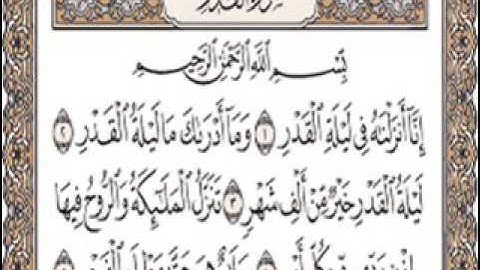 سُورَةُ القَدْرِ
بِسْمِ ٱللَّهِ ٱلرَّحْمَٰنِ ٱلرَّحِيمِ
إِنَّآ أَنزَلْنَٰهُ فِى لَيْلَةِ ٱلْقَدْرِ ١ وَمَآ أَدْرَىٰكَ مَا لَيْلَةُ ٱلْقَدْرِ ٢
لَيْلَةُ ٱلْقَدْرِ خَيْرٌ مِّنْ أَلْفِ شَهْرٍ ٣ تَنَزَّلُ ٱلْمَلَٰٓئِكَةُ وَٱلرُّوحُ فِيهَا